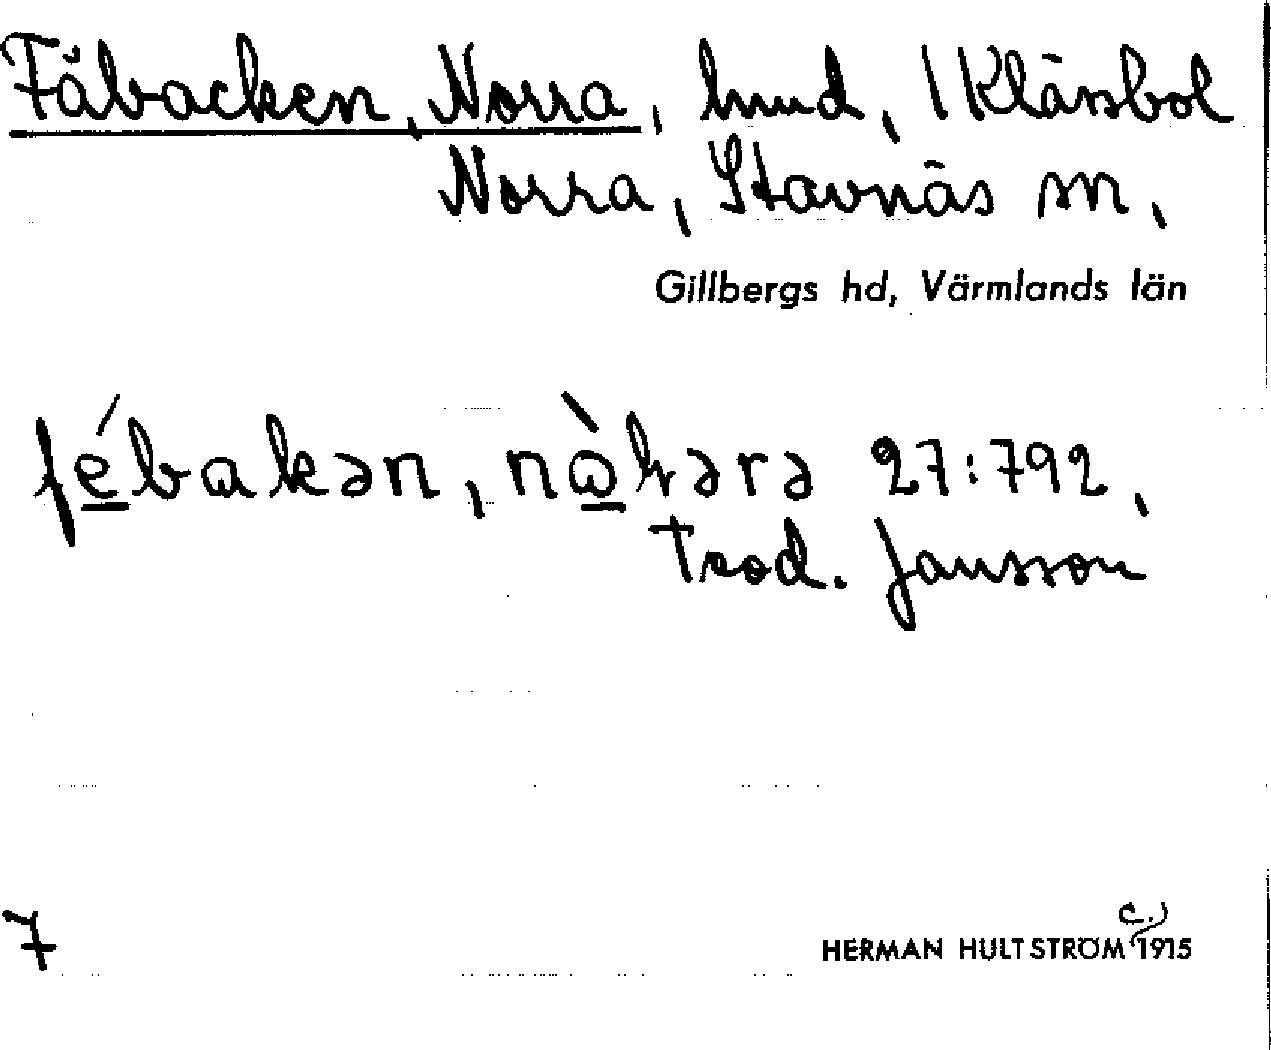 Fäbacken, Norra, hmd, 1 Klässbol
Norra, Stavnäs sn,
Gillbergs hd, Värmlands län
fébakən, nò rərə 27:792,
Teod. Jansson
7
c.)
HERMAN HULTSTRÖM 1915